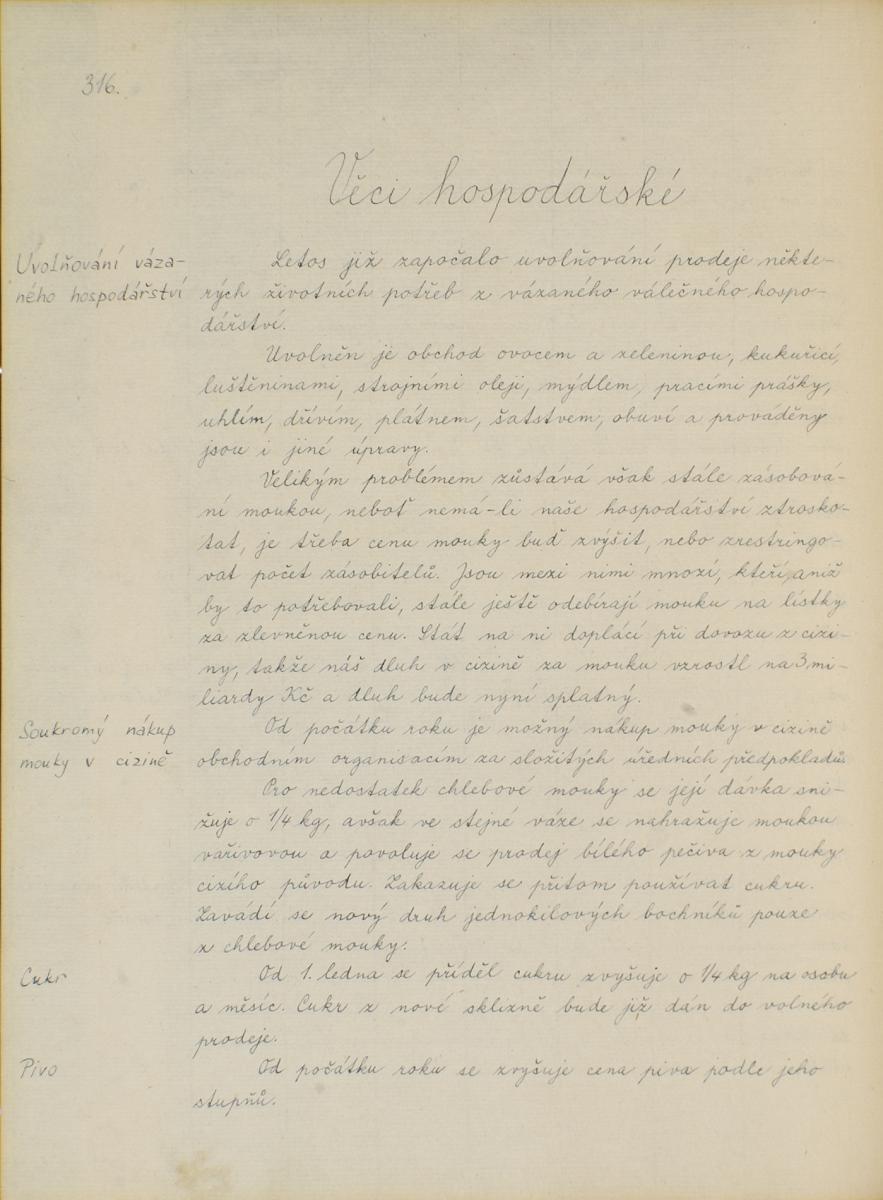 316.
Věci hospodářské
Uvolňování váza-
ného hospodářství
Letos již započalo uvolňování prodeje někte-
rých životních potřeb z vázaného válečného hospo-
dářství.
Uvolněn je obchod ovocem a zeleninou, kukuřicí,
luštěninami, strojními oleji, mýdlem, pracími prášky,
uhlím, dřívím, plátnem, šatstvem, obuví a prováděny
jsou i jiné úpravy.
Velikým problémem zůstává však stále zásobová-
ní moukou, neboť nemá-li naše hospodářství ztrosko-
tat, je třeba cenu mouky buď zvýšit, nebo zrestringo-
vat počet zásobitelů. Jsou mezi nimi mnozí, kteří, aniž
by to potřebovali, stále ještě odebírají mouku na lístky
za zlevněnou cenu. Stát na ni doplácí při dovozu z cizi-
ny, takže náš dluh v cizině za mouku vzrostl na 3 mi-
liardy Kč a dluh bude nyní splatný.
Soukromý nákup
mouky v cizině
Od počátku roku je možný nákup mouky v cizině
obchodním organisacím za složitých úředních předpokladů.
Pro nedostatek chlebové mouky se její dávka sni-
žuje o 1/4 kg, avšak ve stejné váze se nahražuje moukou
vařivovou a povoluje se prodej bílého pečiva z mouky
cizího původu. Zakazuje se přitom používat cukru.
Zavádí se nový druh jednokilových bochníků pouze
z chlebové mouky.
Cukr
Od 1. ledna se příděl cukru zvyšuje o 1/4 kg na osobu
a měsíc. Cukr z nové sklizně bude již dán do volného
prodeje.
Pivo
Od počátku roku se zvyšuje cena piva podle jeho
stupňů.